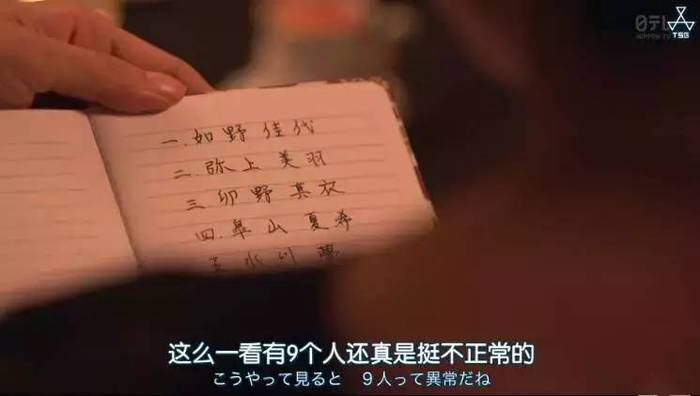 日テレ
NIPPON TV
TSG
一.如野佳代
二.弥上美羽
三卯野真衣
四.皐山夏希
五水川
这么一看有9个人还真是挺不正常的
こうやって見ると 9人って異常だね